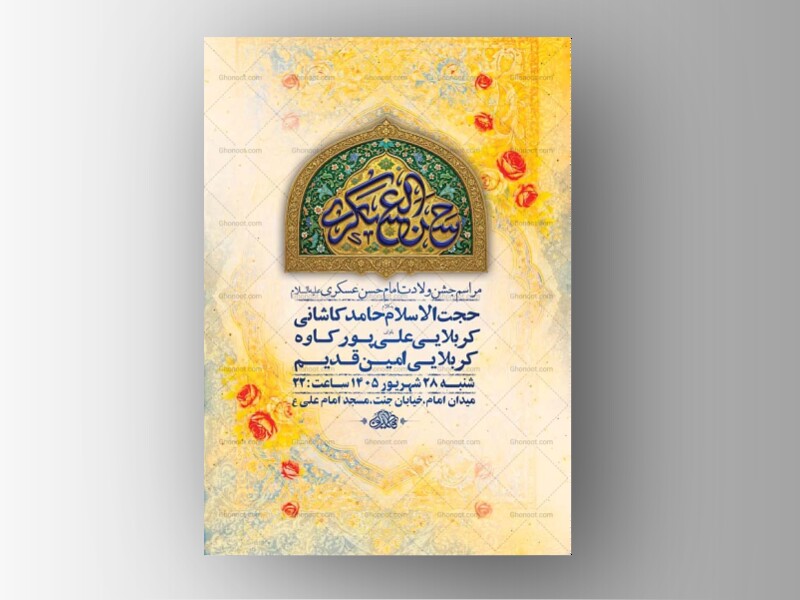 حسن العسکری
مراسم جشن ولادت امام حسن عسکری علیه‌السلام
حجت الاسلام حامد کاشانی
کربلایی علی پور کاوه
کربلایی امین قدیم
شنبه ۲۸ شهریور ۱۴۰۵ ساعت: ۲۲
میدان امام، خیابان جنت، مسجد امام علی ع
Ghonoot.com